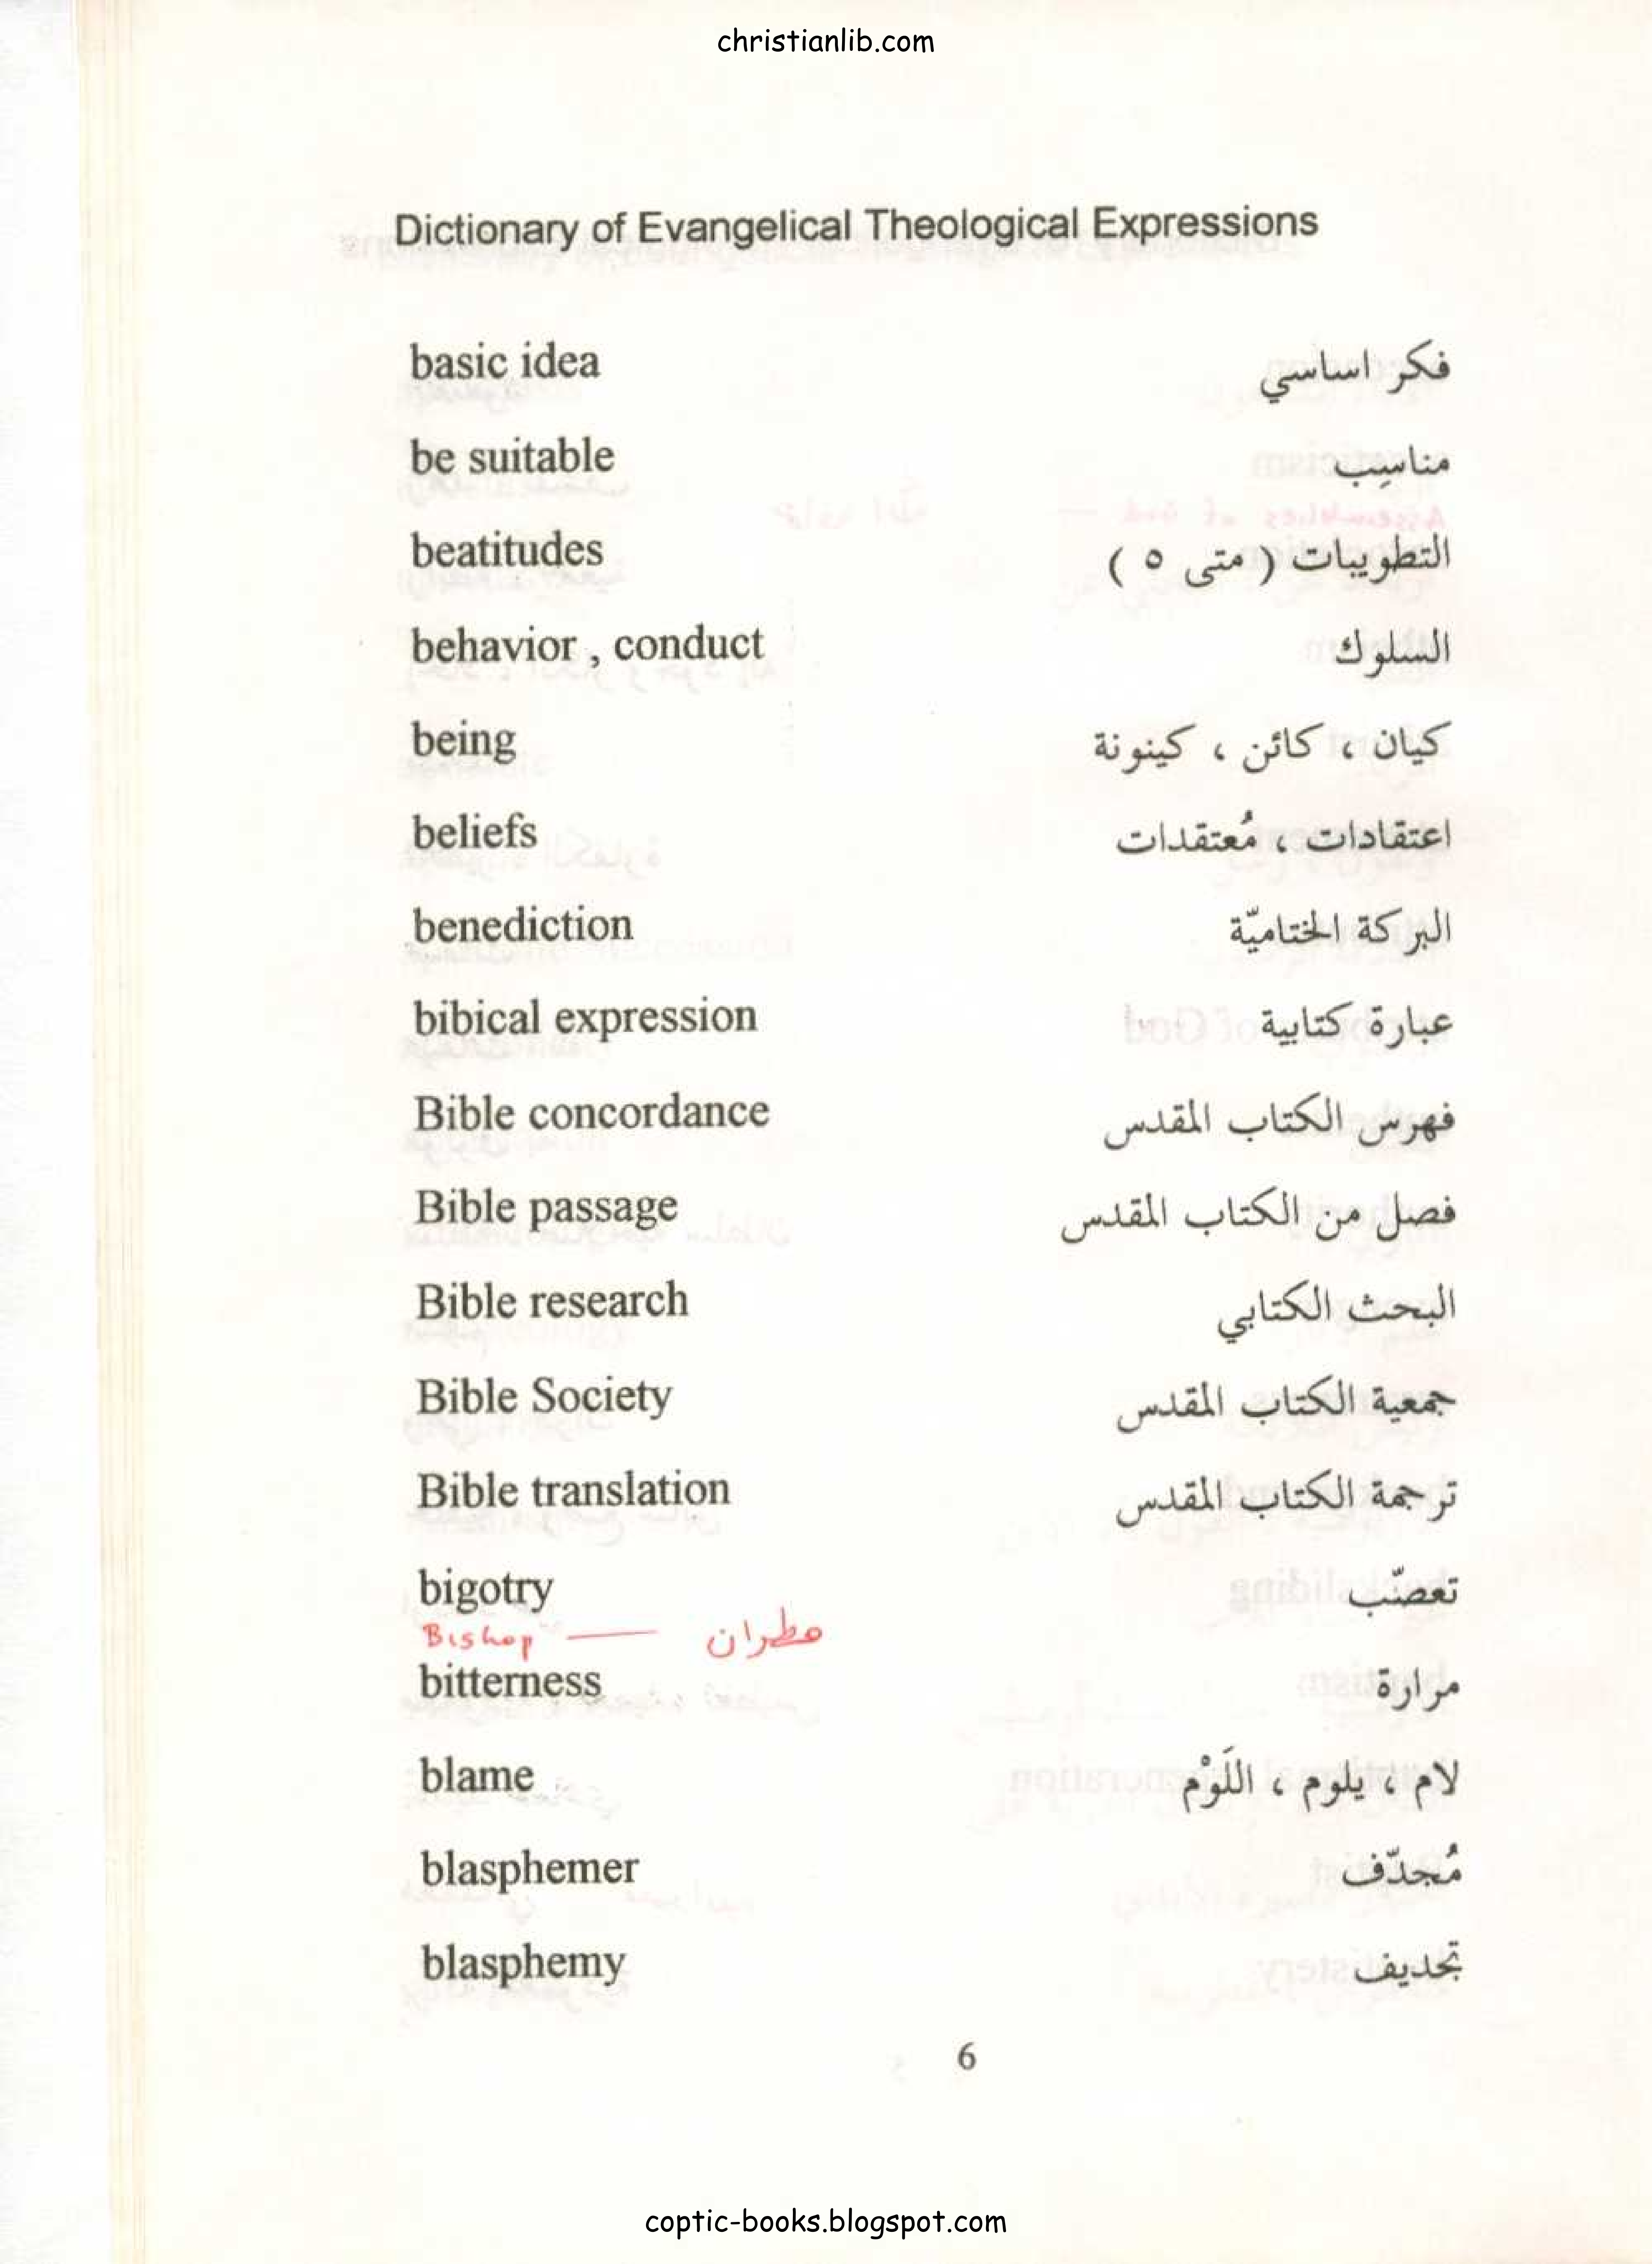 christianlib.com
Dictionary of Evangelical Theological Expressions
basic idea فكر اساسي
be suitable مناسِب
beatitudes التطويبات ( متى ٥ )
behavior , conduct السلوك
being كيان ، كائن ، كينونة
beliefs اعتقادات ، مُعتقدات
benediction البركة الختاميّة
bibical expression عبارة كتابية
Bible concordance فهرس الكتاب المقدس
Bible passage فصل من الكتاب المقدس
Bible research البحث الكتابي
Bible Society جمعية الكتاب المقدس
Bible translation ترجمة الكتاب المقدس
bigotry تعصّب
Bishop — مطران
bitterness مرارة
blame لام ، يلوم ، اللَوْم
blasphemer مُجدّف
blasphemy تجديف
6
coptic-books.blogspot.com